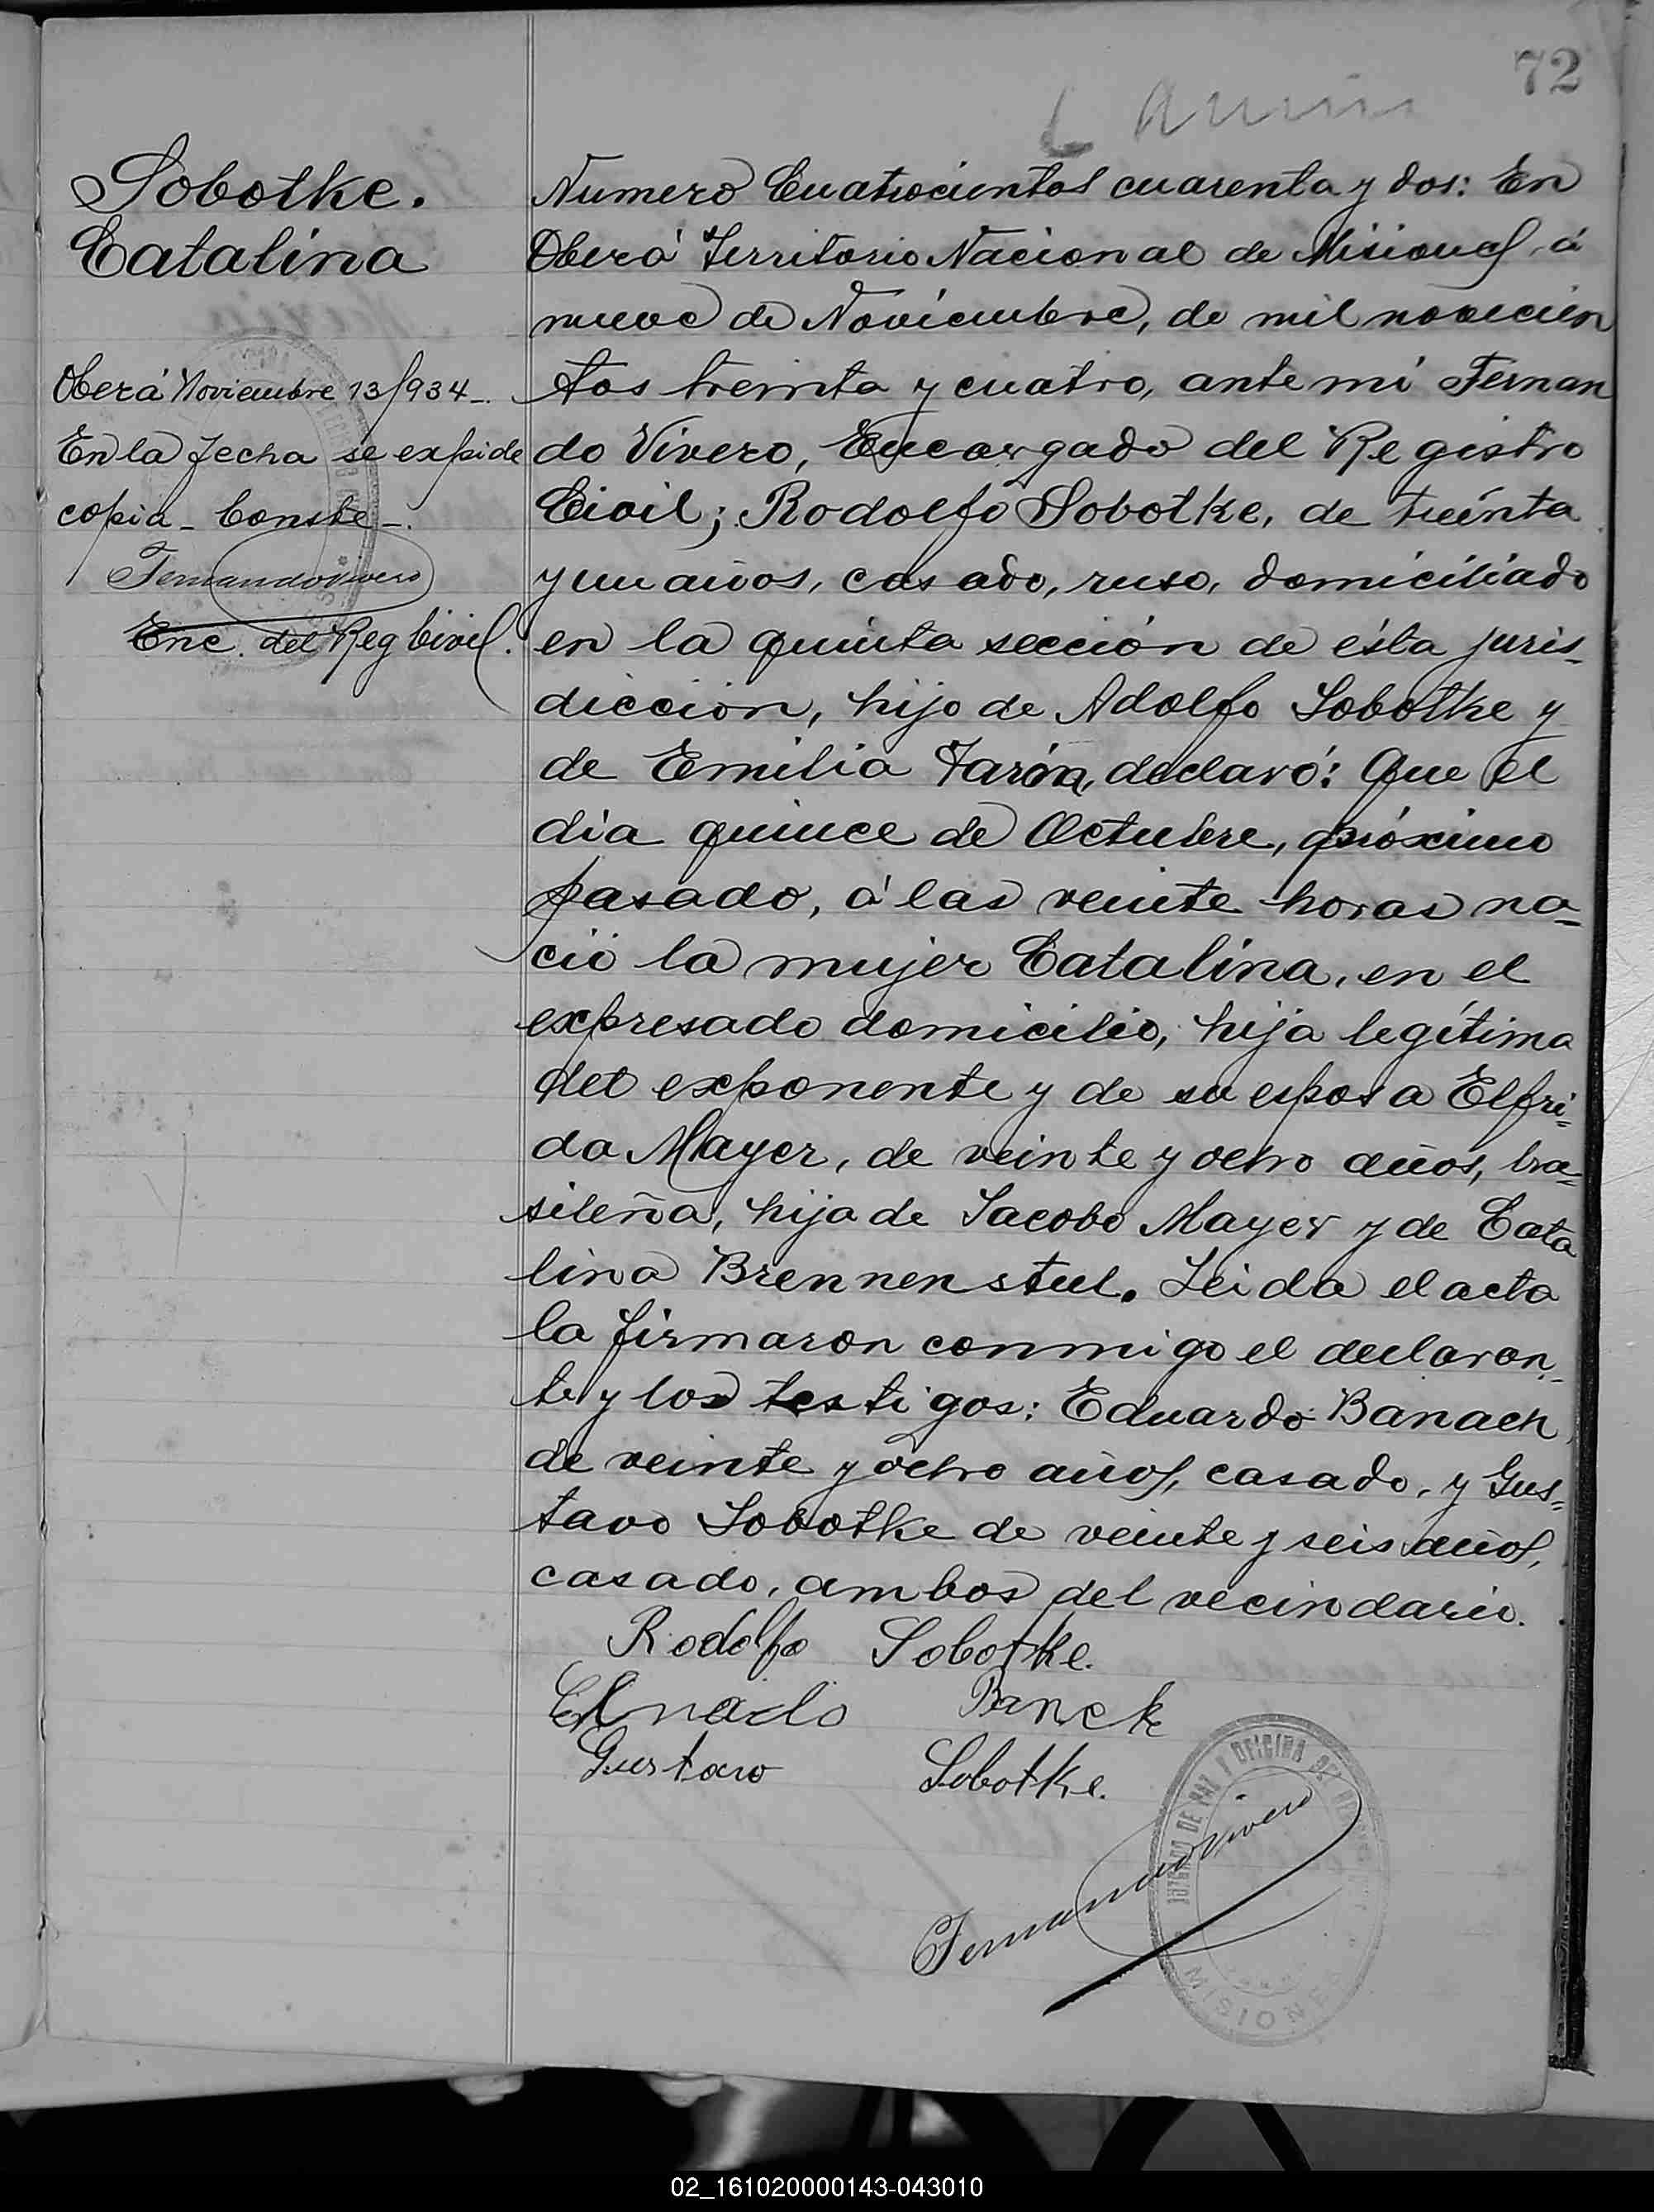 72
Sobotke.
Catalina
Oberá Noviembre 13/934-.
En la fecha se expide
copia - Conste -.
Fernando Vivero
Enc. del Reg Civil.
Numero Cuatrocientos cuarenta y dos: En
Oberá Territorio Nacional de Misiones, á
nueve de Noviembre, de mil novecien
tos treinta y cuatro, ante mí Fernan
do Vivero, Encargado del Registro
Civil; Rodolfo Sobotke, de treinta
y un años, casado, ruso, domiciliado
en la quinta sección de ésta juris-
dicción, hijo de Adolfo Sobotke y
de Emilia declaró: Que el
dia quince de Octubre, próximo
pasado, á las veinte horas na=
ció la mujer Catalina, en el
expresado domicilio, hija legítima
del exponente y de su esposa Elfri=
da Mayer, de veinte y ocho años, bra=
sileña, hija de Jacobo Mayer y de Cata
lina Brennenstul. Leida el acta
la firmaron conmigo el declaran-
te y los testigos: Eduardo Banach,
de veinte y ocho años, casado, y Gus=
tavo Sobotke de veinte y seis años,
casado, ambos del vecindario.
Rodolfo Sobotke.
Gustavo Sobotke.
Fernando Vivero
JUZGADO DE PAZ Y OFICINA DEL
MISIONES
02_161020000143-043010